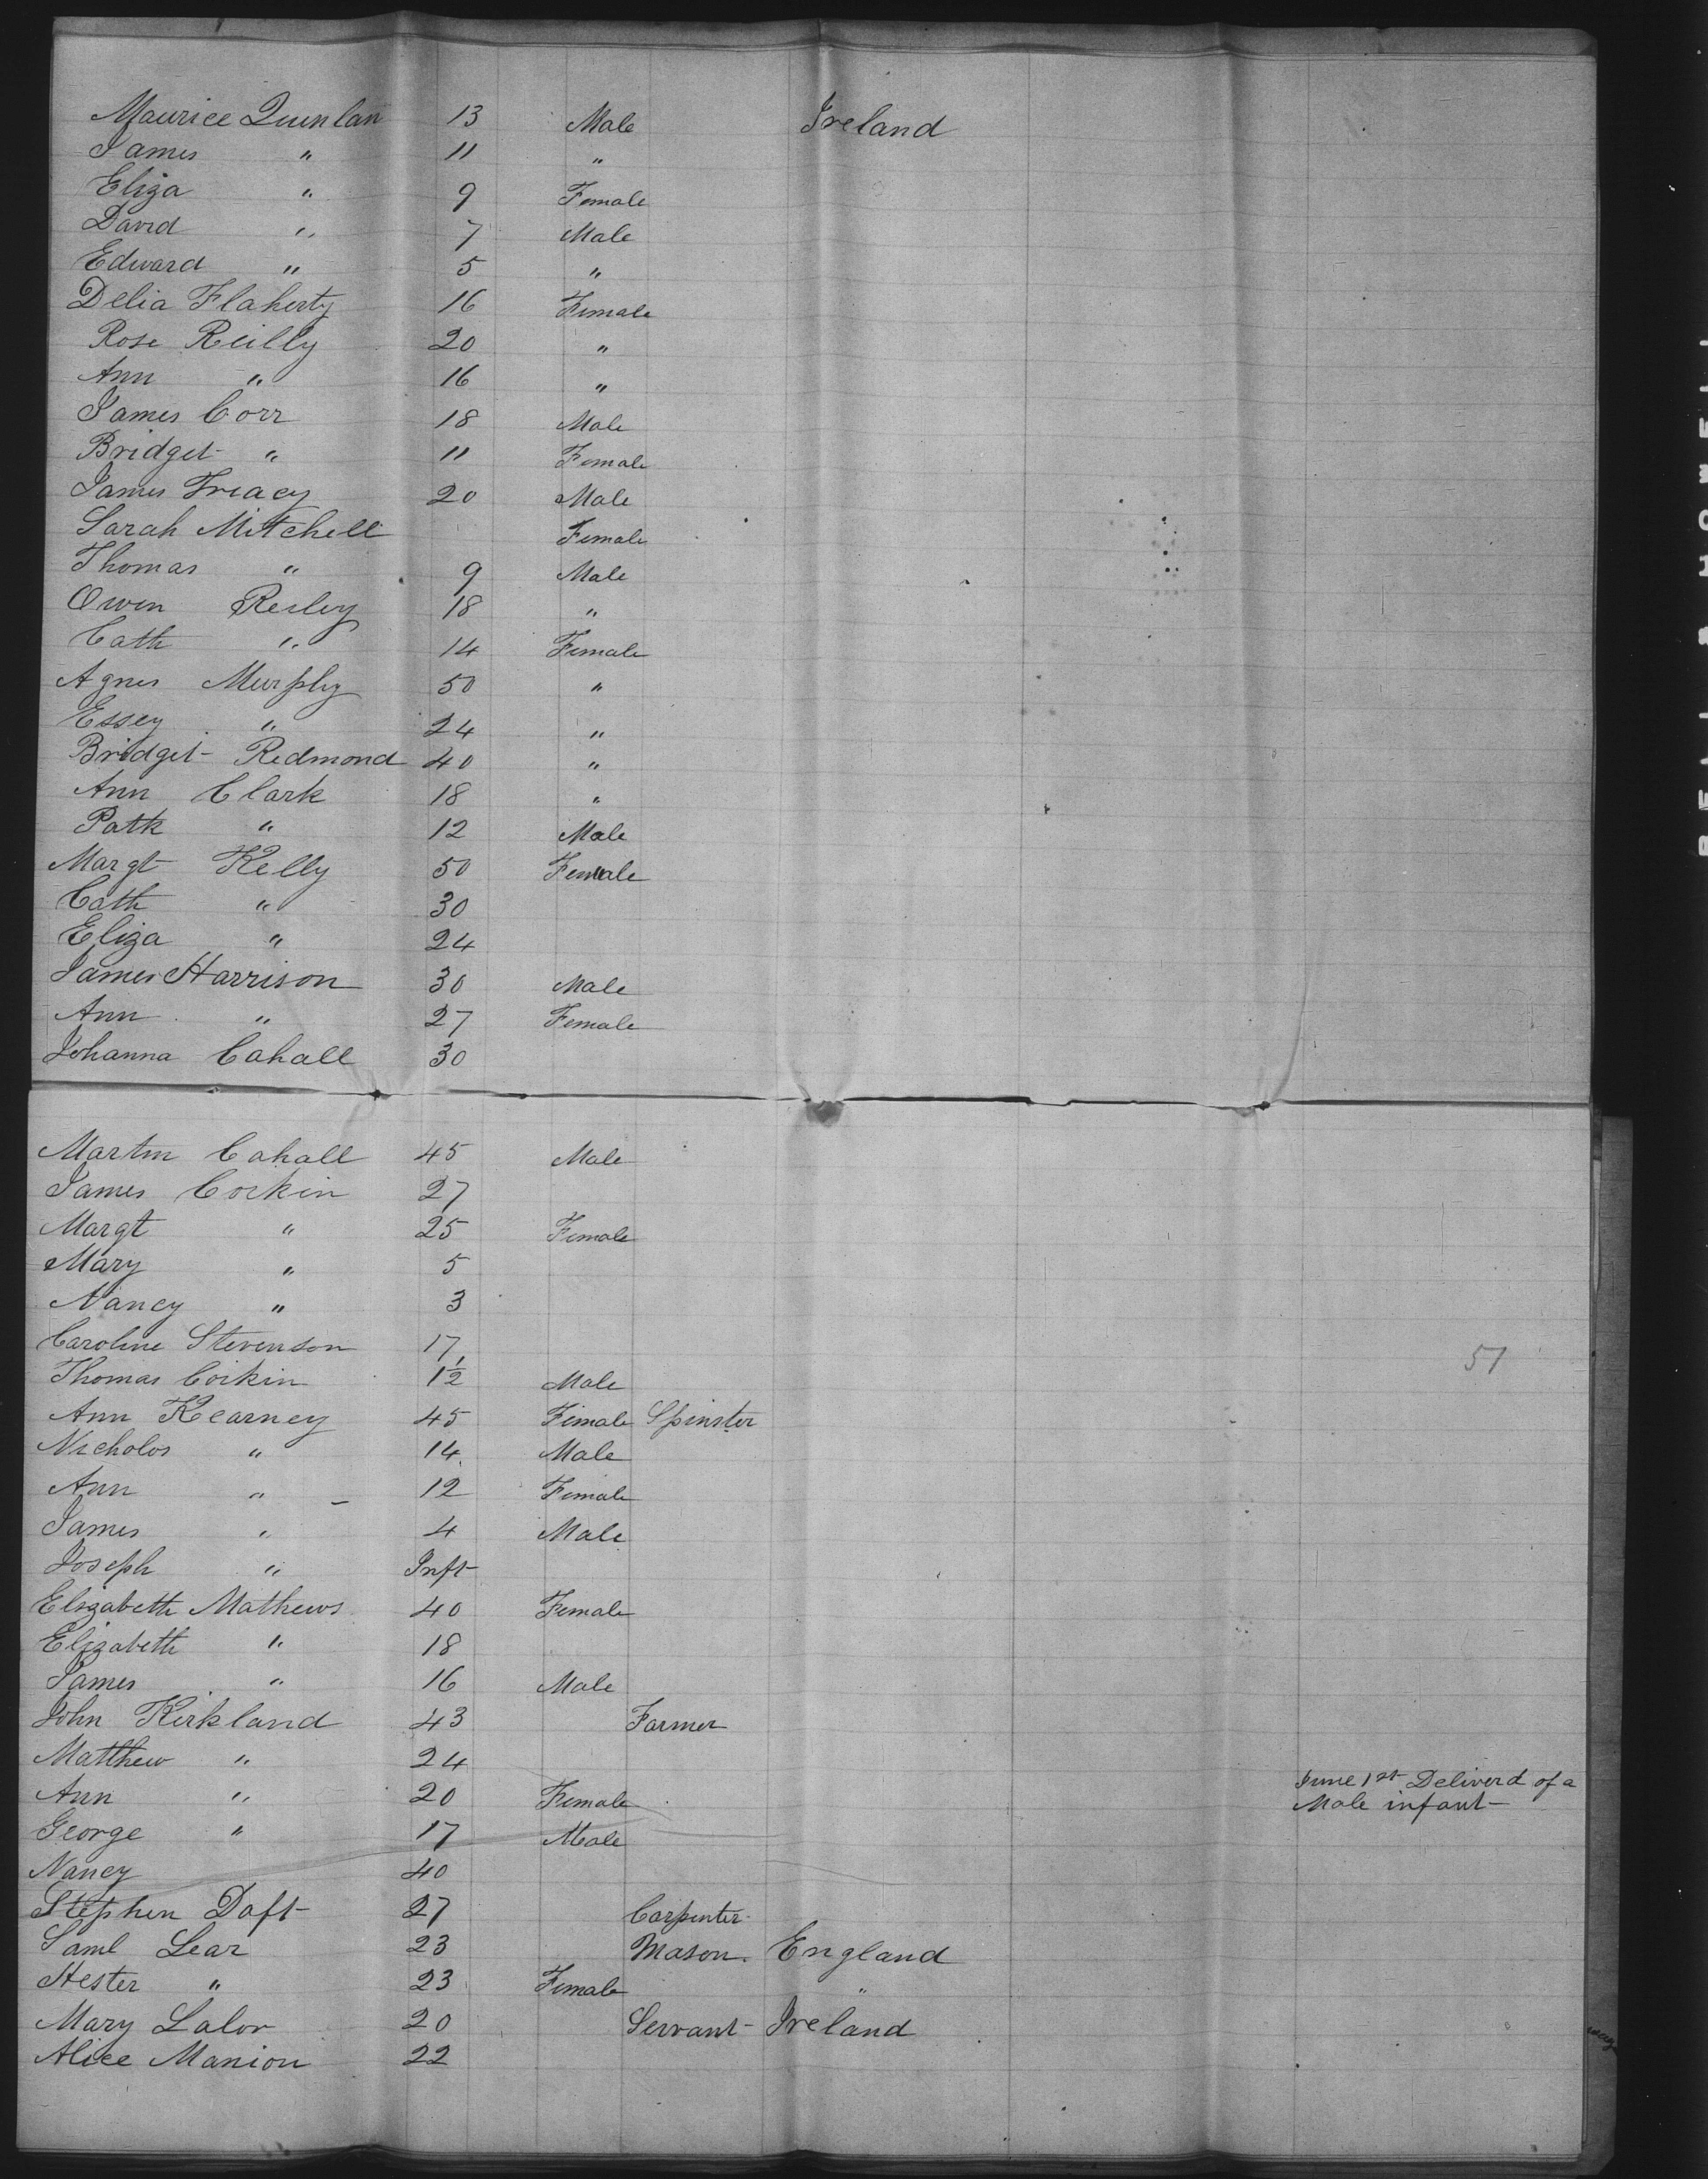 Maurice Quinlan 13 Male Ireland
James " 11 "
Eliza " 9 Female
David " 7 Male
Edward " 5 "
Delia Flaherty 16 Female
Rose Reilly 20 "
Ann " 16 "
James Corr 18 Male
Bridget " 11 Female
James Treacy 20 Male
Sarah Mitchell Female
Thomas " 9 Male
Owen Reiley 18 "
Cath " 14 Female
Agnes Murphy 50 "
Essey " 24 "
Bridget Redmond 40 "
Ann Clark 18 "
Patk " 12 Male
Margt Kelly 50 Female
Cath " 30
Eliza " 24
James Harrison 30 Male
Ann " 27 Female
Johanna Cahall 30
Martin Cahall 45 Male
James Corkin 27
Margt " 25 Female
Mary " 5
Nancy " 3
Caroline Stevenson 17
51
Thomas Corkin 1½ Male
Ann Kearney 45 Female Spinster
Nicholos " 14 Male
Ann " 12 Female
James " 4 Male
Joseph " Inft
Elizabeth Mathews 40 Female
Elizabeth " 18
James " 16 Male
John Kirkland 43 Farmer
Matthew " 24
Ann " 20 Female June 1st Deliverd of a
Male infant
George " 17 Male
Nancy 40
Stephen Daft 27 Carpenter
Saml Lear 23 Mason. England
Hester " 23 Female "
Mary Lalor 20 Servant Ireland
Alice Manion 22